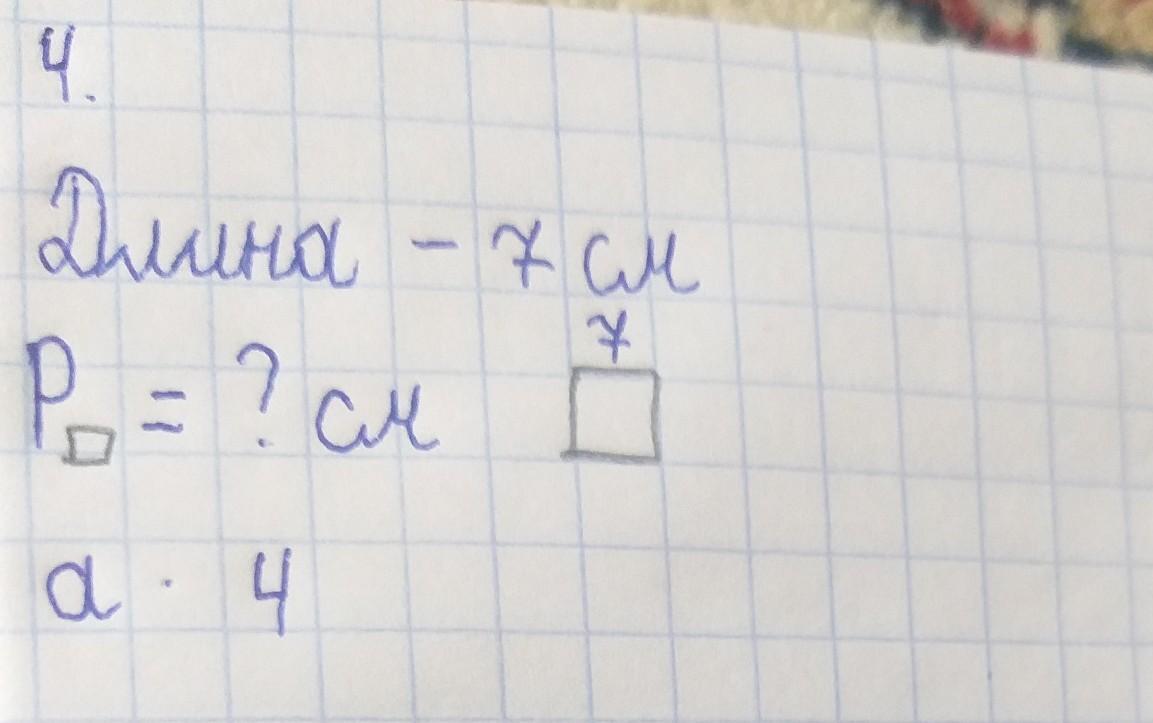 4.
Длина - 7 см
7
P□ = ? см
a · 4